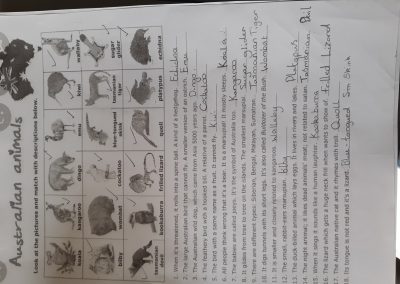 Australian animals
Look at the pictures and match with descriptions below.
wallaby
sugar glider
echidna
kiwi
tasmanian tiger
platypus
emu
blue-tongued skink
quoll
dingo
cockatoo
frilled lizard
kangaroo
wombat
kookaburra
koala
bilby
tasmanian devil
1. When it's threatened, it rolls into a spine ball. A kind of a hedgehog. Echidna
2. The large Australian bird that cannot fly. A smaller version of an ostrich. Emu
3. The Australian wild dog, which came from Asia 5000 years ago. Dingo
4. The feathery bird with a hooked bill. A relative of a parrot. Cockatoo
5. The bird with a same name as a fruit. It cannot fly. Kiwi
6. All people think wrong that it's a bear. It is a marsupial! It mostly sleeps. Koala
7. The babies are called joeys. It's the symbol of Australia too. Kangaroo
8. It glides from tree to tree on the island. The smallest marsupial. Sugar glider
9. There are different types: Siberian, Bengal, Malayan, Sumatran. Tasmanian Tiger
10. It digs tunnels with its short legs. It's also called Bulldozer of the Bush. Wombat
11. It is smaller and closely related to kangaroo. Wallaby
12. The small, rabbit-ears marsupial. bilby
13. The duck-billed animal which lay eggs. It lives in rivers and lakes. Platypus
14. The night animal, it likes dead animals' meat, not related to satan. Tasmanian Devil
15. When it sings it sounds like a human laughter. Kookaburra
16. The lizard which gets a huge neck frill when wants to show off. Frilled Lizard
17. The Australian marsupial cat with red and white dots. Quoll
18. Its tongue is not red and it's a lizard. Blue-tongued Skink